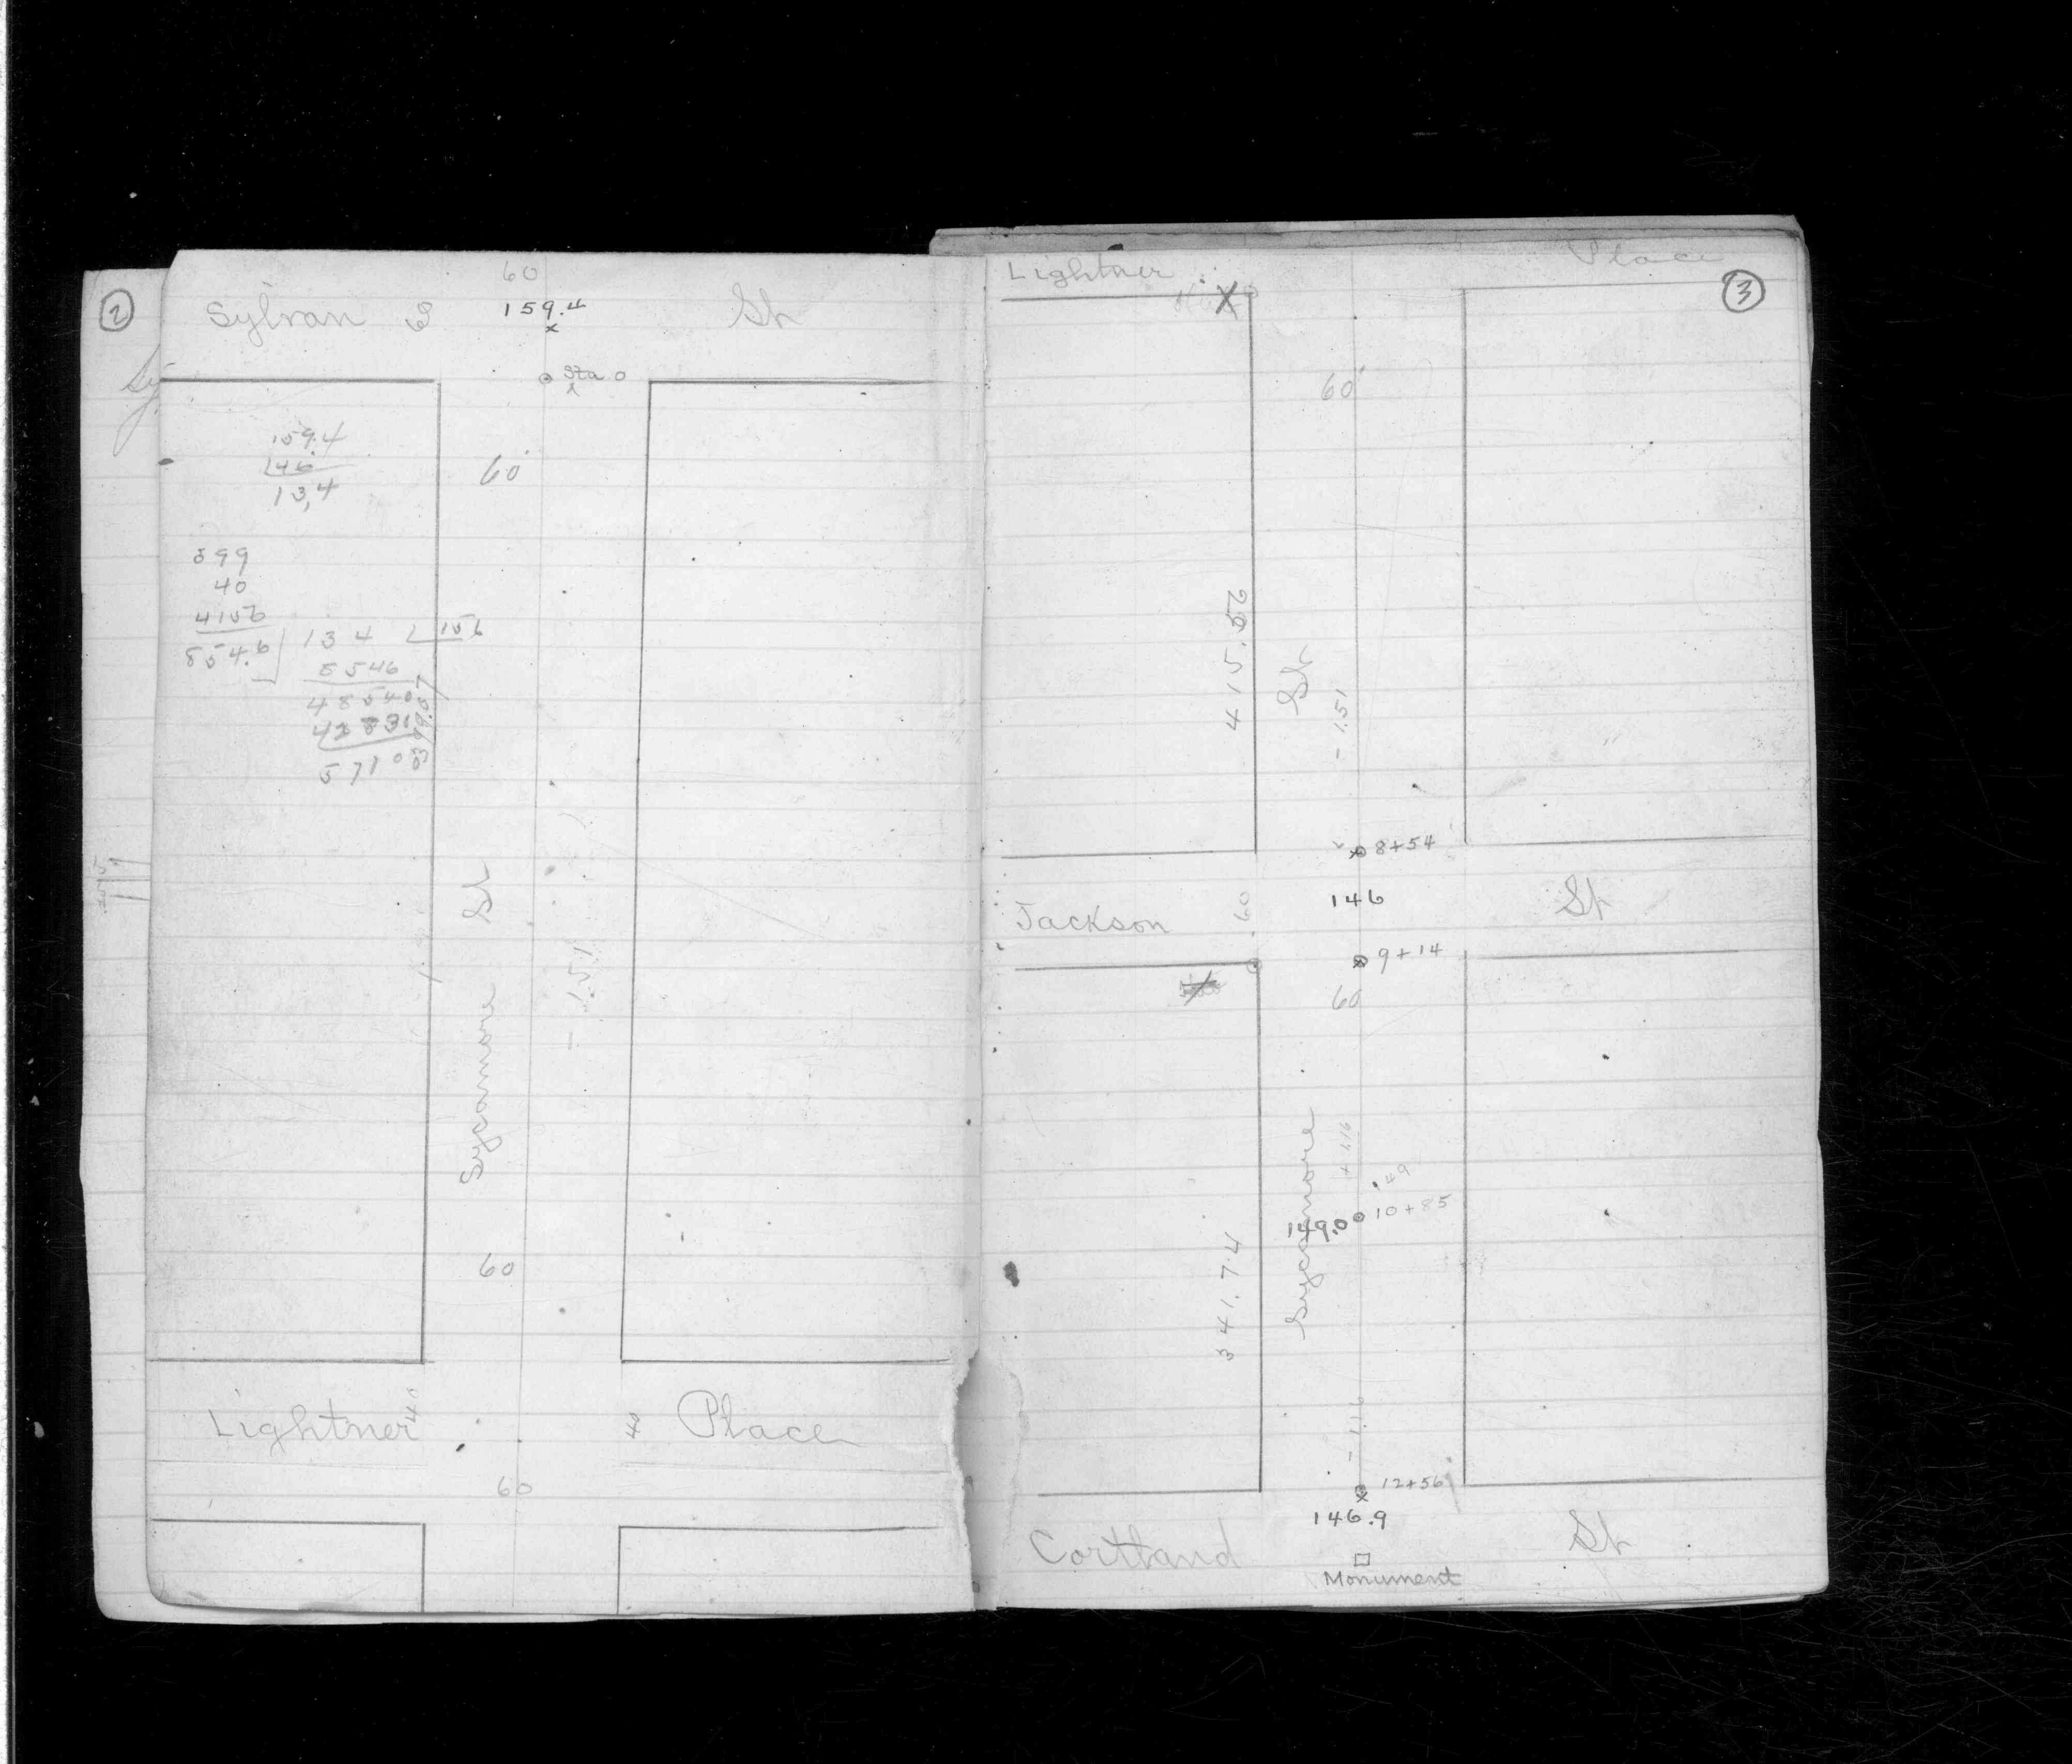 2
60
Sylvan St
159.4
x
Sta 0
Sy
159.4
146.
13,4
60'
399
40
4156
854.6
134
156
8546
48540
42831
5710
399.07
St
Sycamore
- 1.51
60
Lightner
40
40
Place
60
3
Lightner
Place
X
60'
415.56
St
- 1.51
8+54
146
Jackson
60
St
9+14
60
Sycamore
+ 1.16
149
149.0
10+85
341.74
- 1.16
12+56
146.9
Cortland
St
Monument